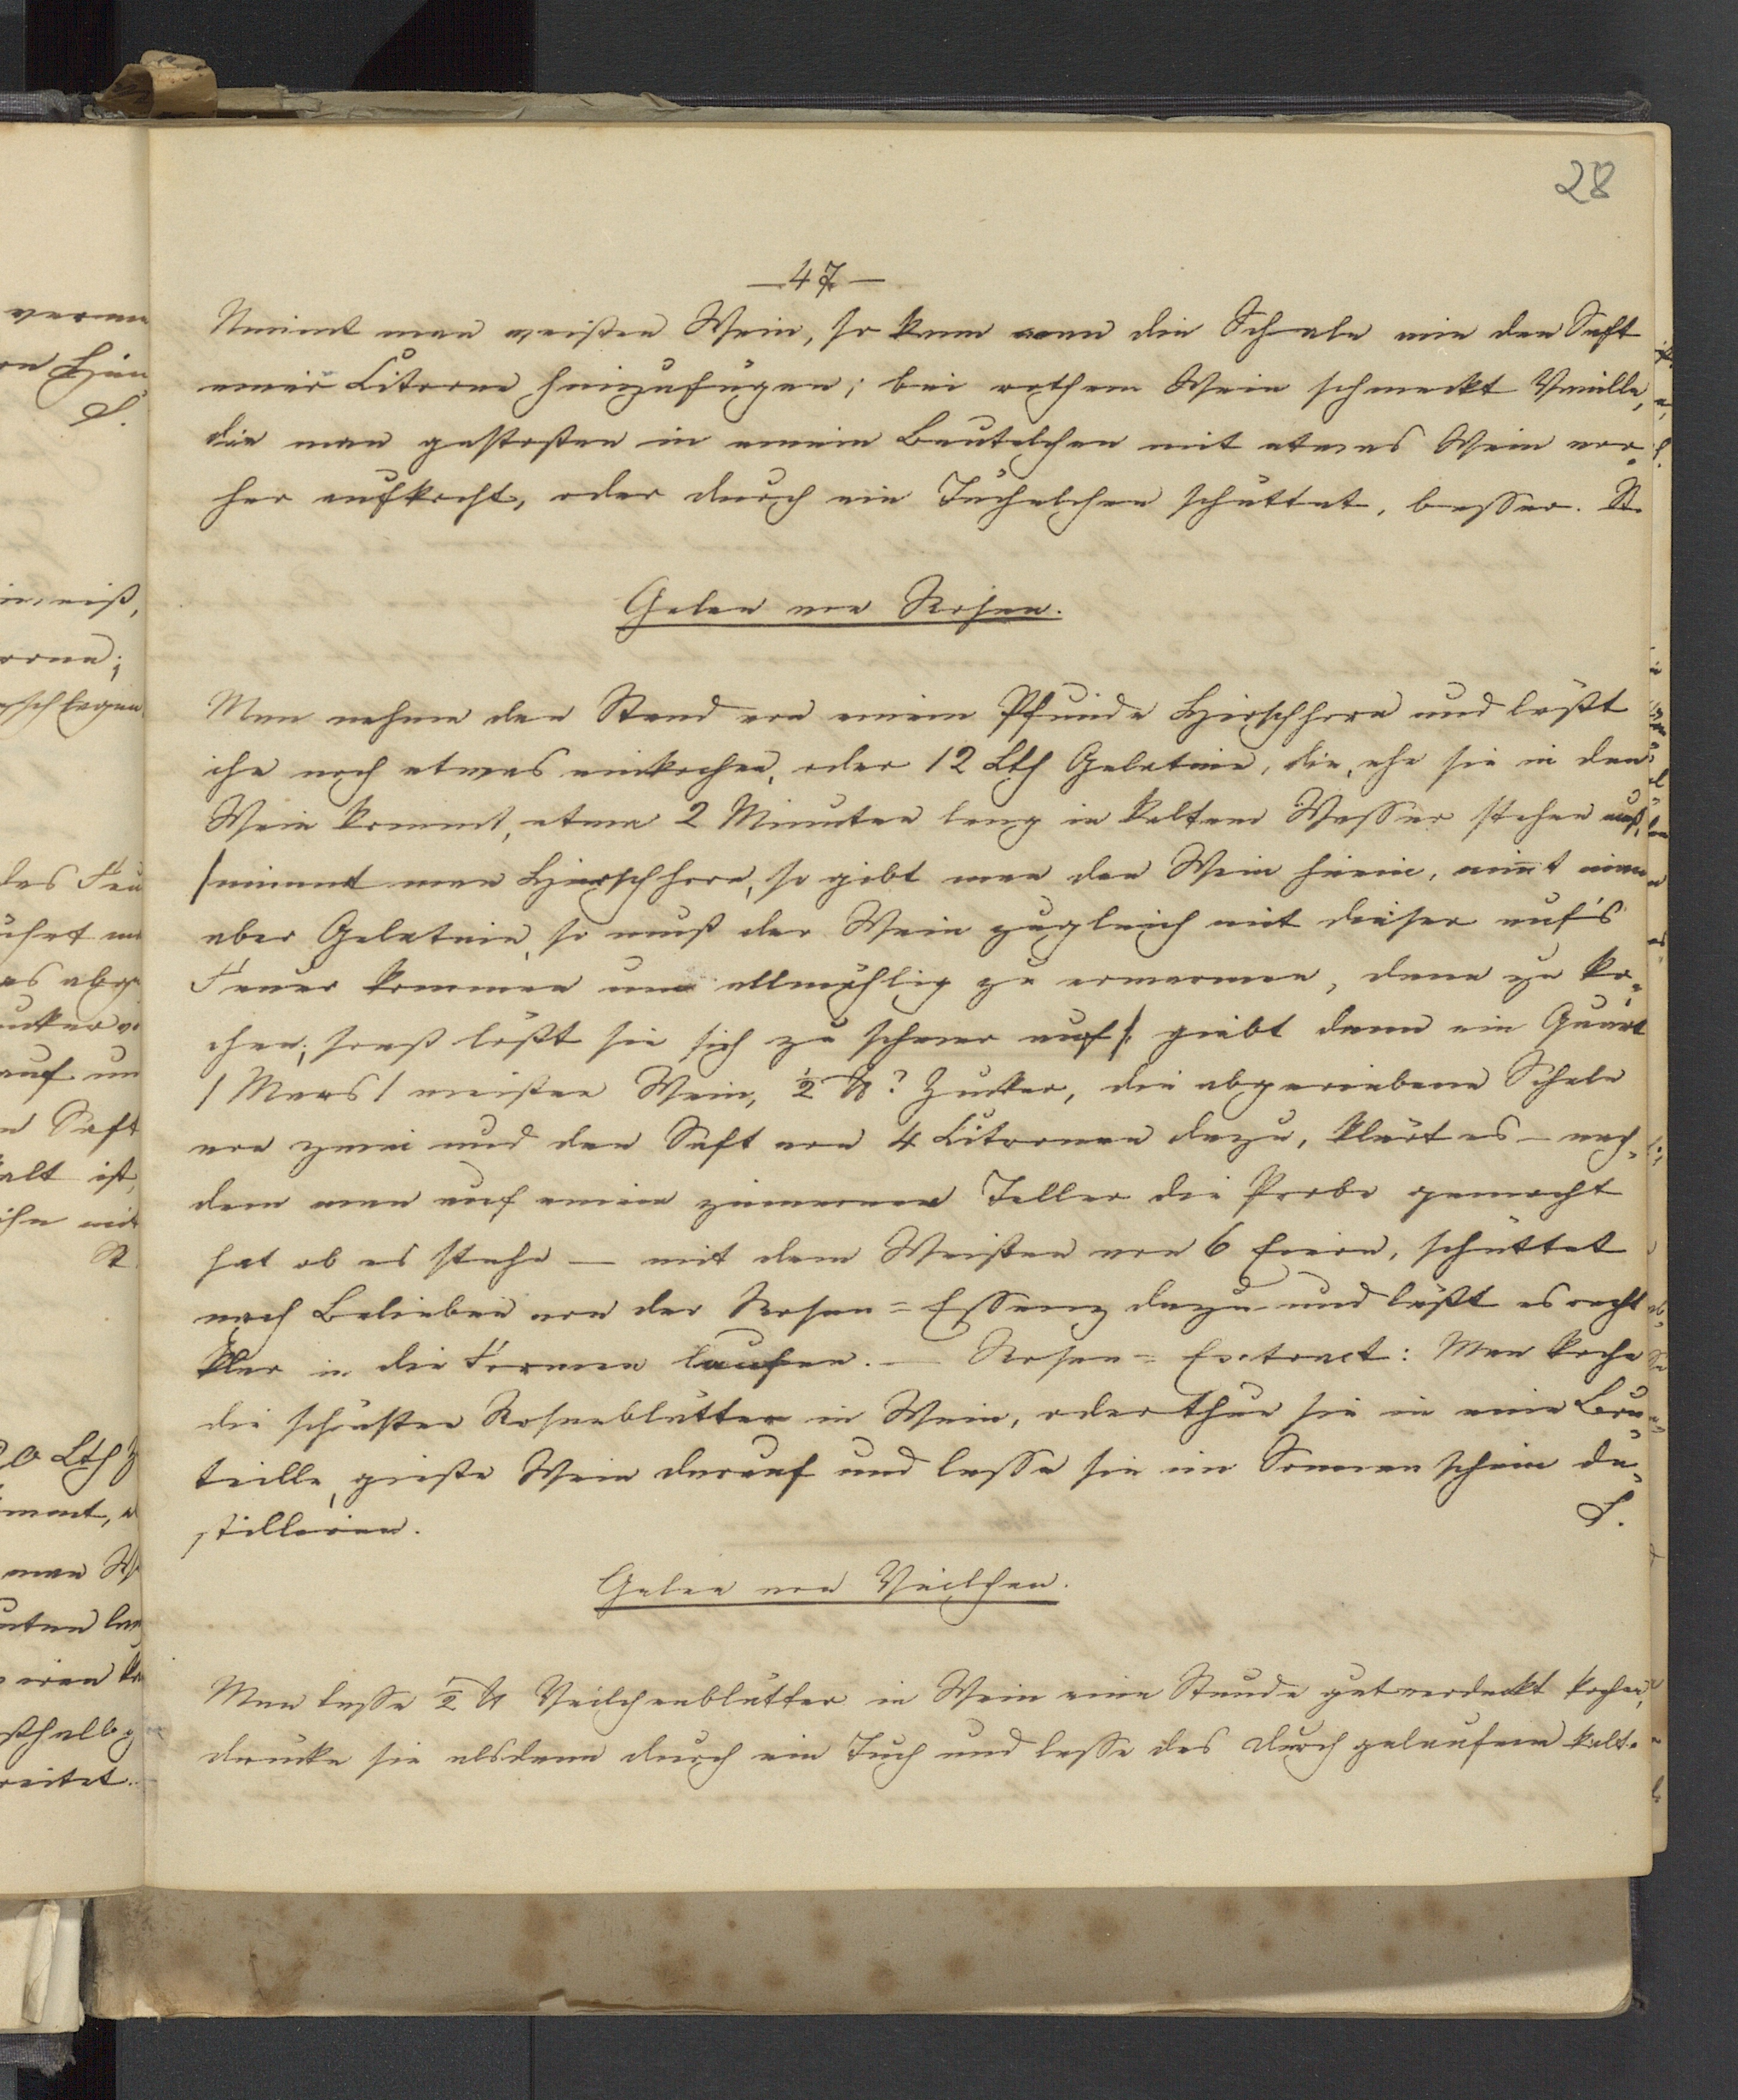 28
— 47 —
Nimmt man weißen Wein, so kann man die Schale wie den Saft
einer Citrone hinzufügen; bei rothem Wein schmeckt Vanille,
die man gestoßen in einem Beutelchen mit etwas Wein vor-
her aufkocht, oder durch ein Tüchelchen schüttet, besser. St.
Gelee von Rosen.
Man nehme den Stand von einem Pfunde Hirschhorn und läßt
ihn noch etwas einkochen, oder 12 Lth Gelatine, die, ehe sie in den
Wein kommt, etwa 2 Minuten lang in kaltem Wasser stehen muß,
/nimmt man Hirschhorn, so gibt man den Wein hinein, nimt man
aber Gelatine, so muß der Wein zugleich mit dieser auf's
Feuer kommen um allmählig zu erwarmen, dann zu ko-
chen; sonst löst sie sich zu schwer auf/: giebt dann ein Quart
/Maas/ weißen Wein, ½ ℔? Zucker, die abgeriebene Schale
von zwei und den Saft von 4 Citronen dazu, klärt es — nach-
dem man auf einem zinnernen Teller die Probe gemacht
hat ob es stehe — mit dem Weißen von 6 Eiern, schüttet
nach Belieben von der Rosen=Essenz dazu und läßt es recht
klar in die Formen laufen. — Rosen=Extract: Man koche
die schönsten Rosenblätter in Wein, oder thue sie in eine Bou-
teille, gieße Wein darauf und lasse sie im Sonnenschein de-
stilliren.
S.
Gelee von Veilchen.
Man lasse ½ ℔ Veilchenblätter in Wein eine Stunde gut verdeckt kochen,
drücke sie alsdann durch ein Tuch und lasse das durch gelaufene kalt-